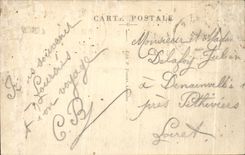 CARTE POSTALE
Bons souvenirs
de Lourdes
bon voyage
C B
Monsieur et Madame
Delafoy Julien
à Denainvilliers
près Pithiviers
Loiret